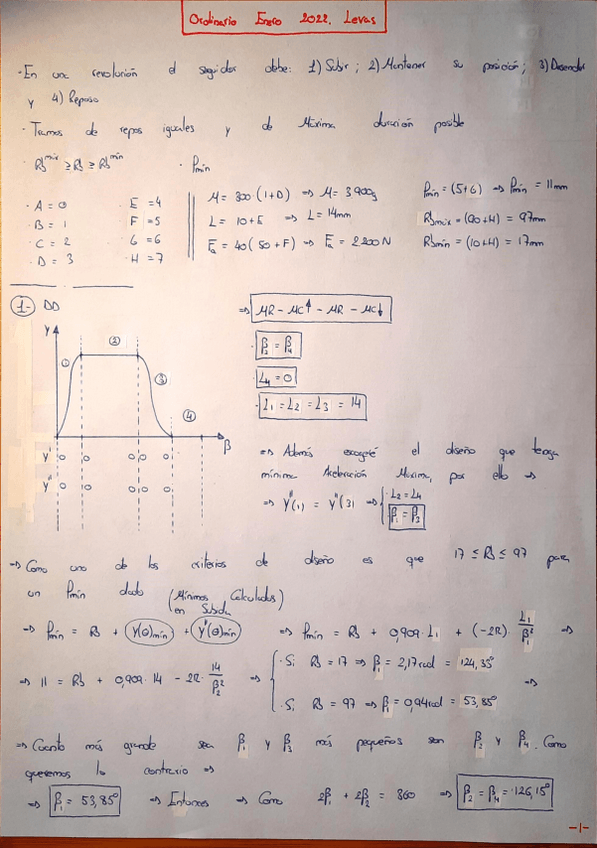 Ordinario Enero 2022. Levas
· En una revolución el seguidor debe: 1) Subir; 2) Mantener su posición; 3) Descender
y 4) Reposo
· Tramos de reposo iguales y de Máxima duración posible
· Rb máx ≥ Rb ≥ Rb mín · ρmín
· A = 0
· B = 1
· C = 2
· D = 3
E = 4
F = 5
G = 6
· H = 7
M = 300 (1+D) ⇒ M = 3900g
L = 10 + E ⇒ L = 14mm
Fa = 40 (50 + F) ⇒ Fa = 2200N
ρmín = (5+6) ⇒ ρmín = 11mm
Rbmáx = (90+H) = 97mm
Rbmín = (10+H) = 17mm
1- DD
Y
① ② ③ ④
β
Y' 0 0 0 0 0
Y'' 0 0 0 0 0
⇒ MR - MC↑ - MR - MC↓
· β2 = β4
· L4 = 0
· L1 = L2 = L3 = 14
⇒ Además escogeré el diseño que tenga
mínima Aceleración Máxima, por ello ⇒
⇒ Y''(1) = Y''(3) ⇒ { · L2 = L4
β1 = β3
⇒ Como uno de los criterios de diseño es que 17 ≤ Rb ≤ 97 para
un ρmín dado (Mínimos Calculados)
en Subida
⇒ ρmín = Rb + Y(θ)mín + Y''(θ)mín ⇒ ρmín = Rb + 0,909·L1 + (-2π)·L1/β1² ⇒
⇒ 11 = Rb + 0,909·14 - 2π·14/β1² ⇒ { · Si Rb = 17 ⇒ β1 = 2,17rad = 124,35°
· Si Rb = 97 ⇒ β1 = 0,94rad = 53,85° ⇒
⇒ Cuanto más grande sea β1 y β3 más pequeños son β2 y β4. Como
queremos lo contrario ⇒
⇒ β1 = 53,85° ⇒ Entonces ⇒ Como 2β1 + 2β2 = 360 ⇒ β2 = β4 = 126,15°
-1-